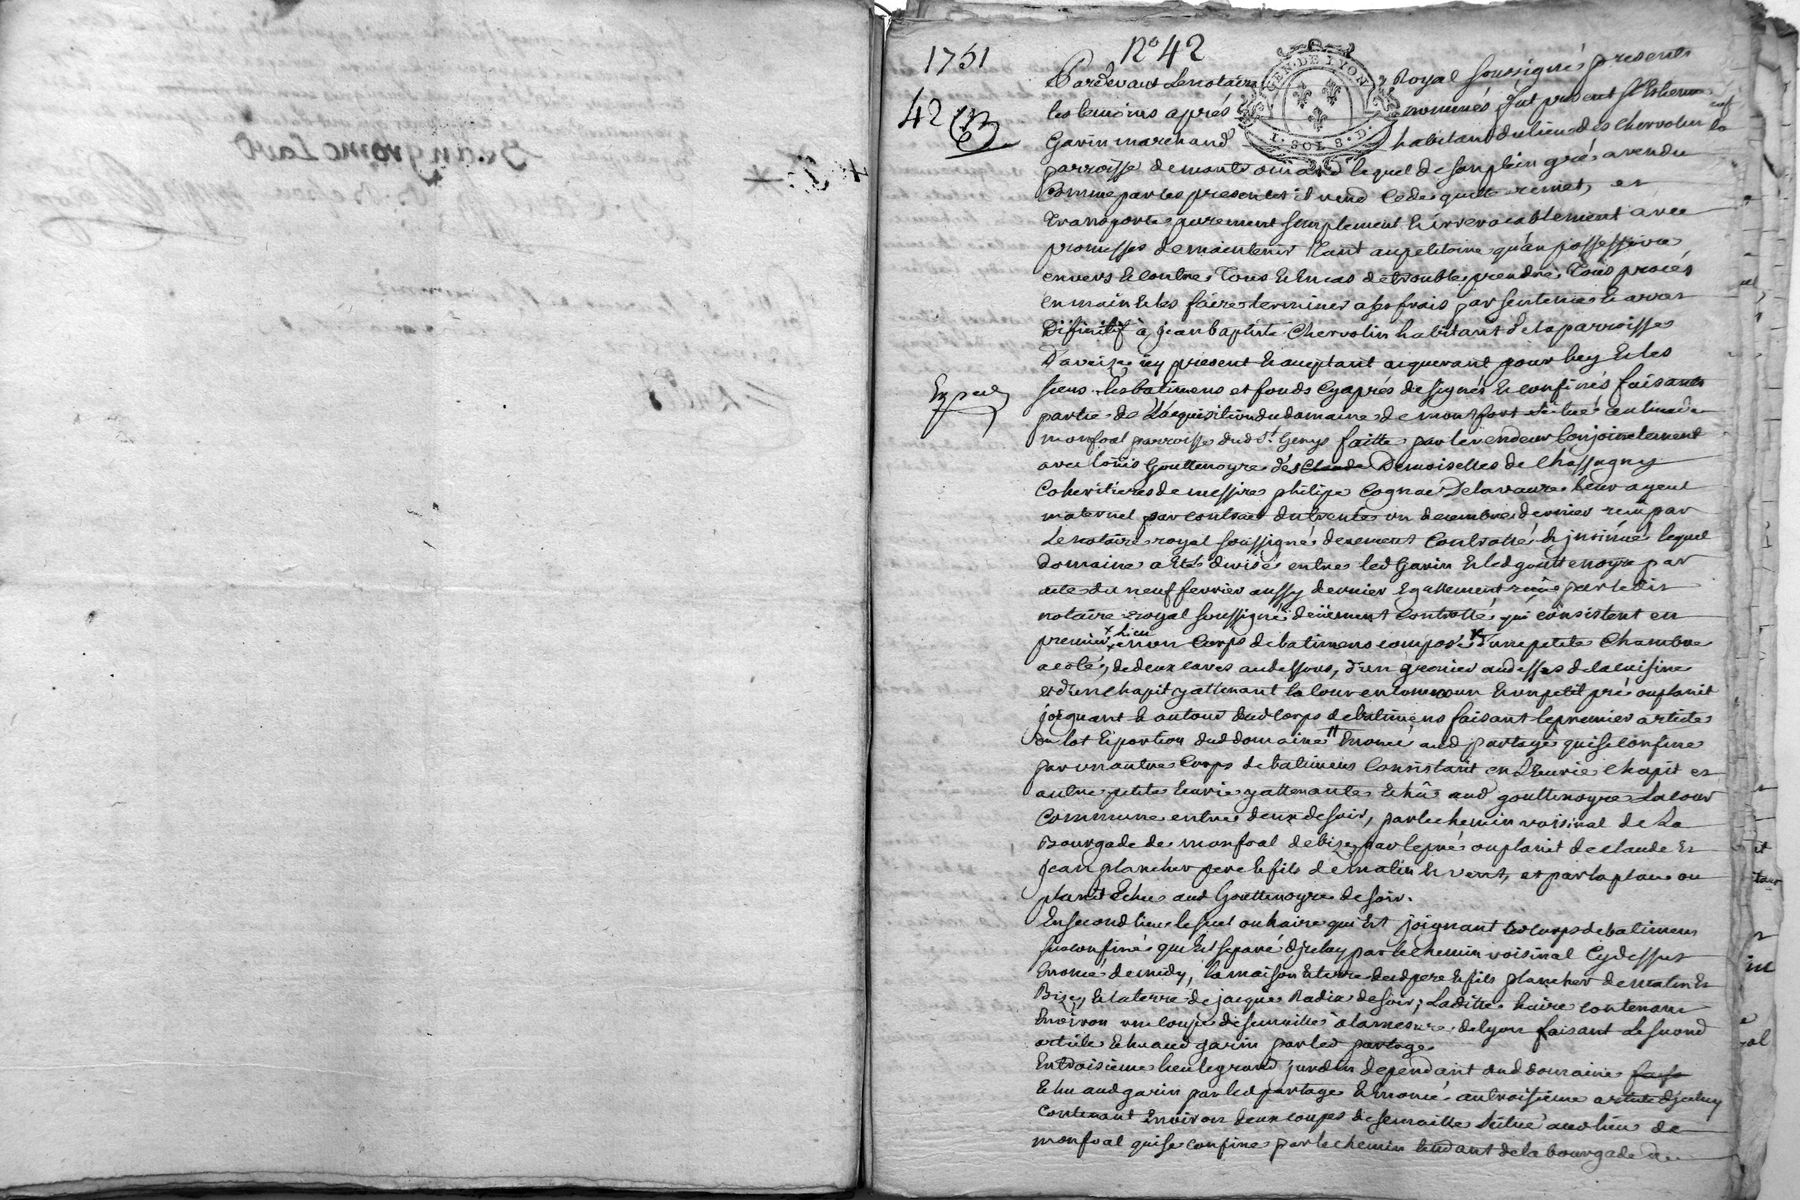 1751
n° 42
42
GEN. DE LYON
I. SOL 8. D.
Expedz
Pardevant Le notaire Royal soussigné presents
les temoins aprés nommés fut present Sr Estienne
Garin marchand habitant du lieu des Chervolin
parroisse de montromand lequel de son plein gré a vendu
Comme par les presentes il vend Cede quitte remet, et
transporte purement simplement & irrevocablement avec
promesse de maintenir tant au petitoire qu'au possessoire
envers & contre Tous & En cas de trouble prendre Tous procés
en main & les faire terminer a ses frais par sentence & arrest
Diffinitif à jean baptiste Chervolin habitant de la parroisse
D'aveize icy present & acceptant acquerant pour luy & les
siens les batimens et fonds Cyaprés designés & confinés faisants
partie de L'acquisition du domaine de monfort située au lieu de
monfoal parroisse dud St. Genys faitte par le vendeur Conjointement
avec Loüis Gouttenoyre des Demoiselles de Chassagny
Coheritieres de messire philipe Cognac Delavaure leur ayeul
maternel par contract du trente un decembre dernier reçu par
Le notaire royal soussigné deuement Controllé & jnsinué lequel
domaine a Eté divisé entre led Garin & led gouttenoyre par
acte du neuf fevrier aussy dernier Egallement reçu par ledit
notaire royal soussigné deüement controllé, qui consistent en
premier lieu en un Corps de batimens composé d'une petite Chambre
a coté, de deux caves au dessous, d'un grenier au dessus de la cuisine
et d'un chapit y attenant la cour en commun & un petit pré ou planit
joignant & autour dud Corps de batimens faisant le premier article
du lot & portion dud domaine Enoncé aud partage qui se confine
par un autre Corps de batimens Consistant en Ecurie Chapit et
autre petite Ecurie y attenante Echû aud gouttenoyre La cour
Commune entre deux de soir, par le chemin voisinal de La
Bourgade de monfoal de bize, par le pré ou planit de claude Et
Jean plancher pere & fils de matin & vent, et par la place ou
planit Echu aud Gouttenoyre de soir.
En second lieu le suel ou haire qui Est joignant led Corps de batimens
susconfiné qui Est separé d'jceluy par le chemin voisinal Cy dessus
Enoncé de midy, la maison & terre desd pere & fils plancher de matin Et
Bize, & la terre de jacques Radix de soir, Laditte haire contenant
Environ une coupe de semaille à la mesure de lyon faisant Le second
article Echu aud garin par led partage
En troisieme lieu le grand jardin dependant dud domaine
Echu aud garin par led partage & Enoncé au troisieme article d'jceluy
Contenant Environ deux coupes de semaille située aud lieu de
monfoal qui se confine par le chemin tendant de la bourgade de